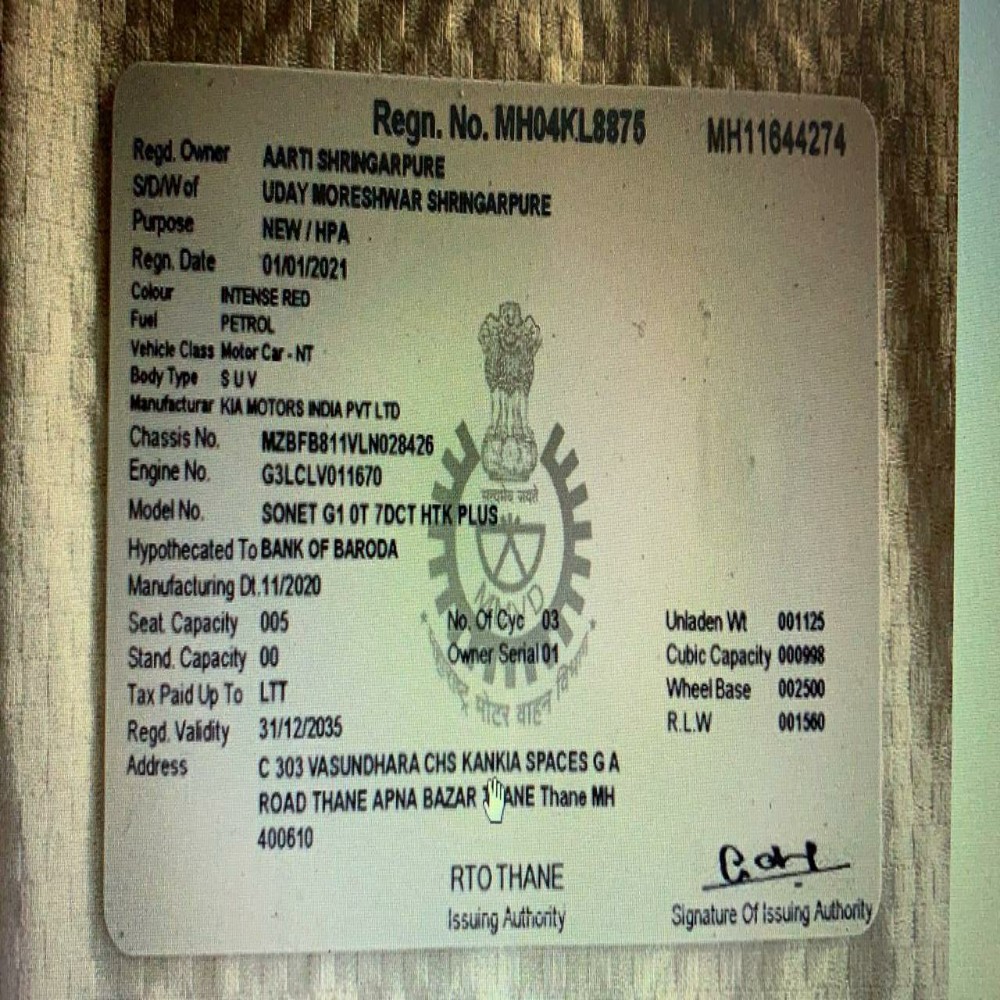 Regn. No. MH04KL8875 MH11644274
Regd. Owner AARTI SHRINGARPURE
S/D/W of UDAY MORESHWAR SHRINGARPURE
Purpose NEW / HPA
Regn. Date 01/01/2021
Colour INTENSE RED
Fuel PETROL
Vehicle Class Motor Car - NT
Body Type S U V
Manufacturar KIA MOTORS INDIA PVT LTD
Chassis No. MZBFB811VLN028426
Engine No. G3LCLV011670
सत्यमेव जयते
Model No. SONET G1 0T 7DCT HTK PLUS
Hypothecated To BANK OF BARODA
Manufacturing Dt. 11/2020
MMVD
Seat Capacity 005 No. Of Cyc 03 Unladen Wt 001125
Stand. Capacity 00 Owner Serial 01 Cubic Capacity 000998
Tax Paid Up To LTT Wheel Base 002500
मोटर वाहन
Regd. Validity 31/12/2035 R.L.W 001560
Address C 303 VASUNDHARA CHS KANKIA SPACES G A
ROAD THANE APNA BAZAR Thane MH
400610
RTO THANE
Issuing Authority Signature Of Issuing Authority